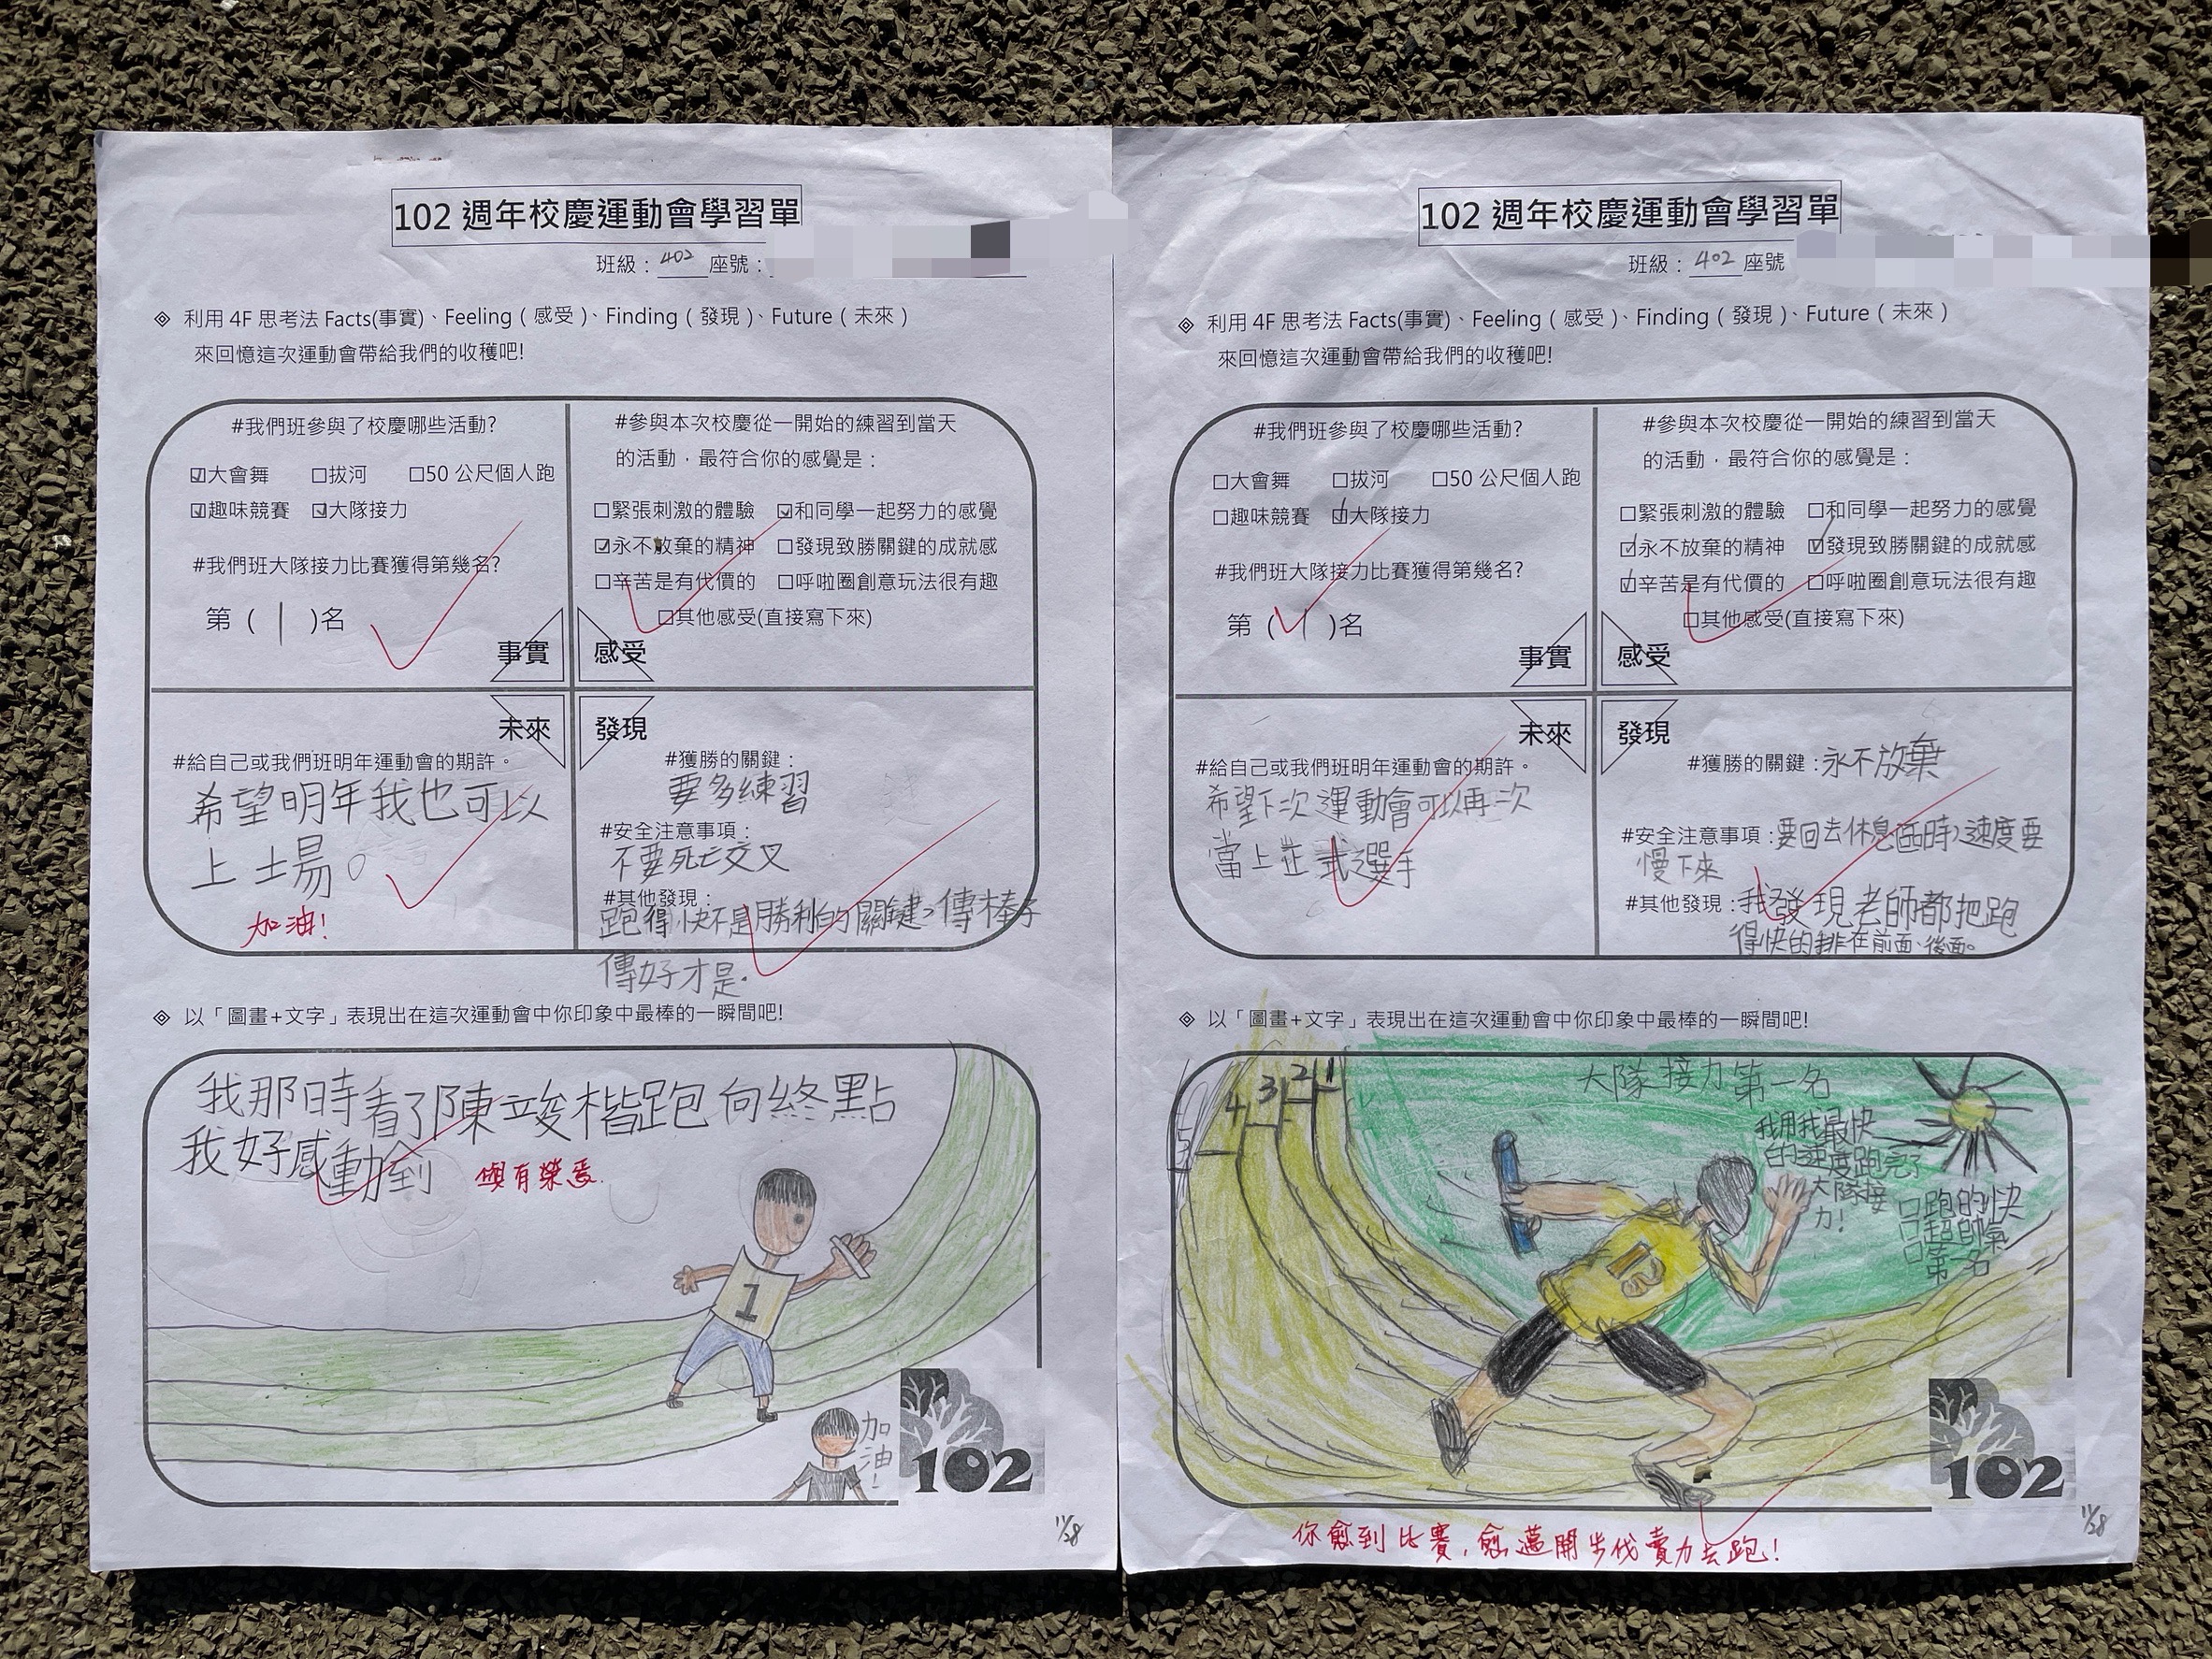 102 週年校慶運動會學習單
班級：402 座號：
◈ 利用 4F 思考法 Facts(事實)、Feeling（感受）、Finding（發現）、Future（未來）
來回憶這次運動會帶給我們的收穫吧!
#我們班參與了校慶哪些活動?
☑大會舞 □拔河 □50 公尺個人跑
☑趣味競賽 ☑大隊接力
#我們班大隊接力比賽獲得第幾名?
第（ | ）名
事實
#參與本次校慶從一開始的練習到當天
的活動，最符合你的感覺是：
□緊張刺激的體驗 ☑和同學一起努力的感覺
☑永不放棄的精神 □發現致勝關鍵的成就感
□辛苦是有代價的 □呼啦圈創意玩法很有趣
□其他感受(直接寫下來)
感受
未來
#給自己或我們班明年運動會的期許。
希望明年我也可以
上場。
加油!
發現
#獲勝的關鍵：
要多練習
#安全注意事項：
不要死亡交叉
#其他發現：
跑得快不是勝利的關鍵，傳棒子
傳好才是.
◈ 以「圖畫+文字」表現出在這次運動會中你印象中最棒的一瞬間吧!
我那時看了陳竣楷跑向終點
我好感動到
與有榮焉.
1
加油!
102
11/28
102 週年校慶運動會學習單
班級：402 座號
◈ 利用 4F 思考法 Facts(事實)、Feeling（感受）、Finding（發現）、Future（未來）
來回憶這次運動會帶給我們的收穫吧!
#我們班參與了校慶哪些活動?
□大會舞 □拔河 □50 公尺個人跑
□趣味競賽 ☑大隊接力
#我們班大隊接力比賽獲得第幾名?
第（ | ）名
事實
#參與本次校慶從一開始的練習到當天
的活動，最符合你的感覺是：
□緊張刺激的體驗 □和同學一起努力的感覺
☑永不放棄的精神 ☑發現致勝關鍵的成就感
☑辛苦是有代價的 □呼啦圈創意玩法很有趣
□其他感受(直接寫下來)
感受
未來
#給自己或我們班明年運動會的期許。
希望下次運動會可以再次
當上正式選手
發現
#獲勝的關鍵：永不放棄
#安全注意事項：要回去休息區時，速度要
慢下來
#其他發現：我發現老師都把跑
得快的排在前面、後面。
◈ 以「圖畫+文字」表現出在這次運動會中你印象中最棒的一瞬間吧!
4 3 2 1
5
大隊接力第一名
我用我最快
的速度跑完了
大隊接
力!
□跑的快
□超帥氣
□第一名
102
你愈到比賽，愈邁開步伐賣力去跑!
11/28